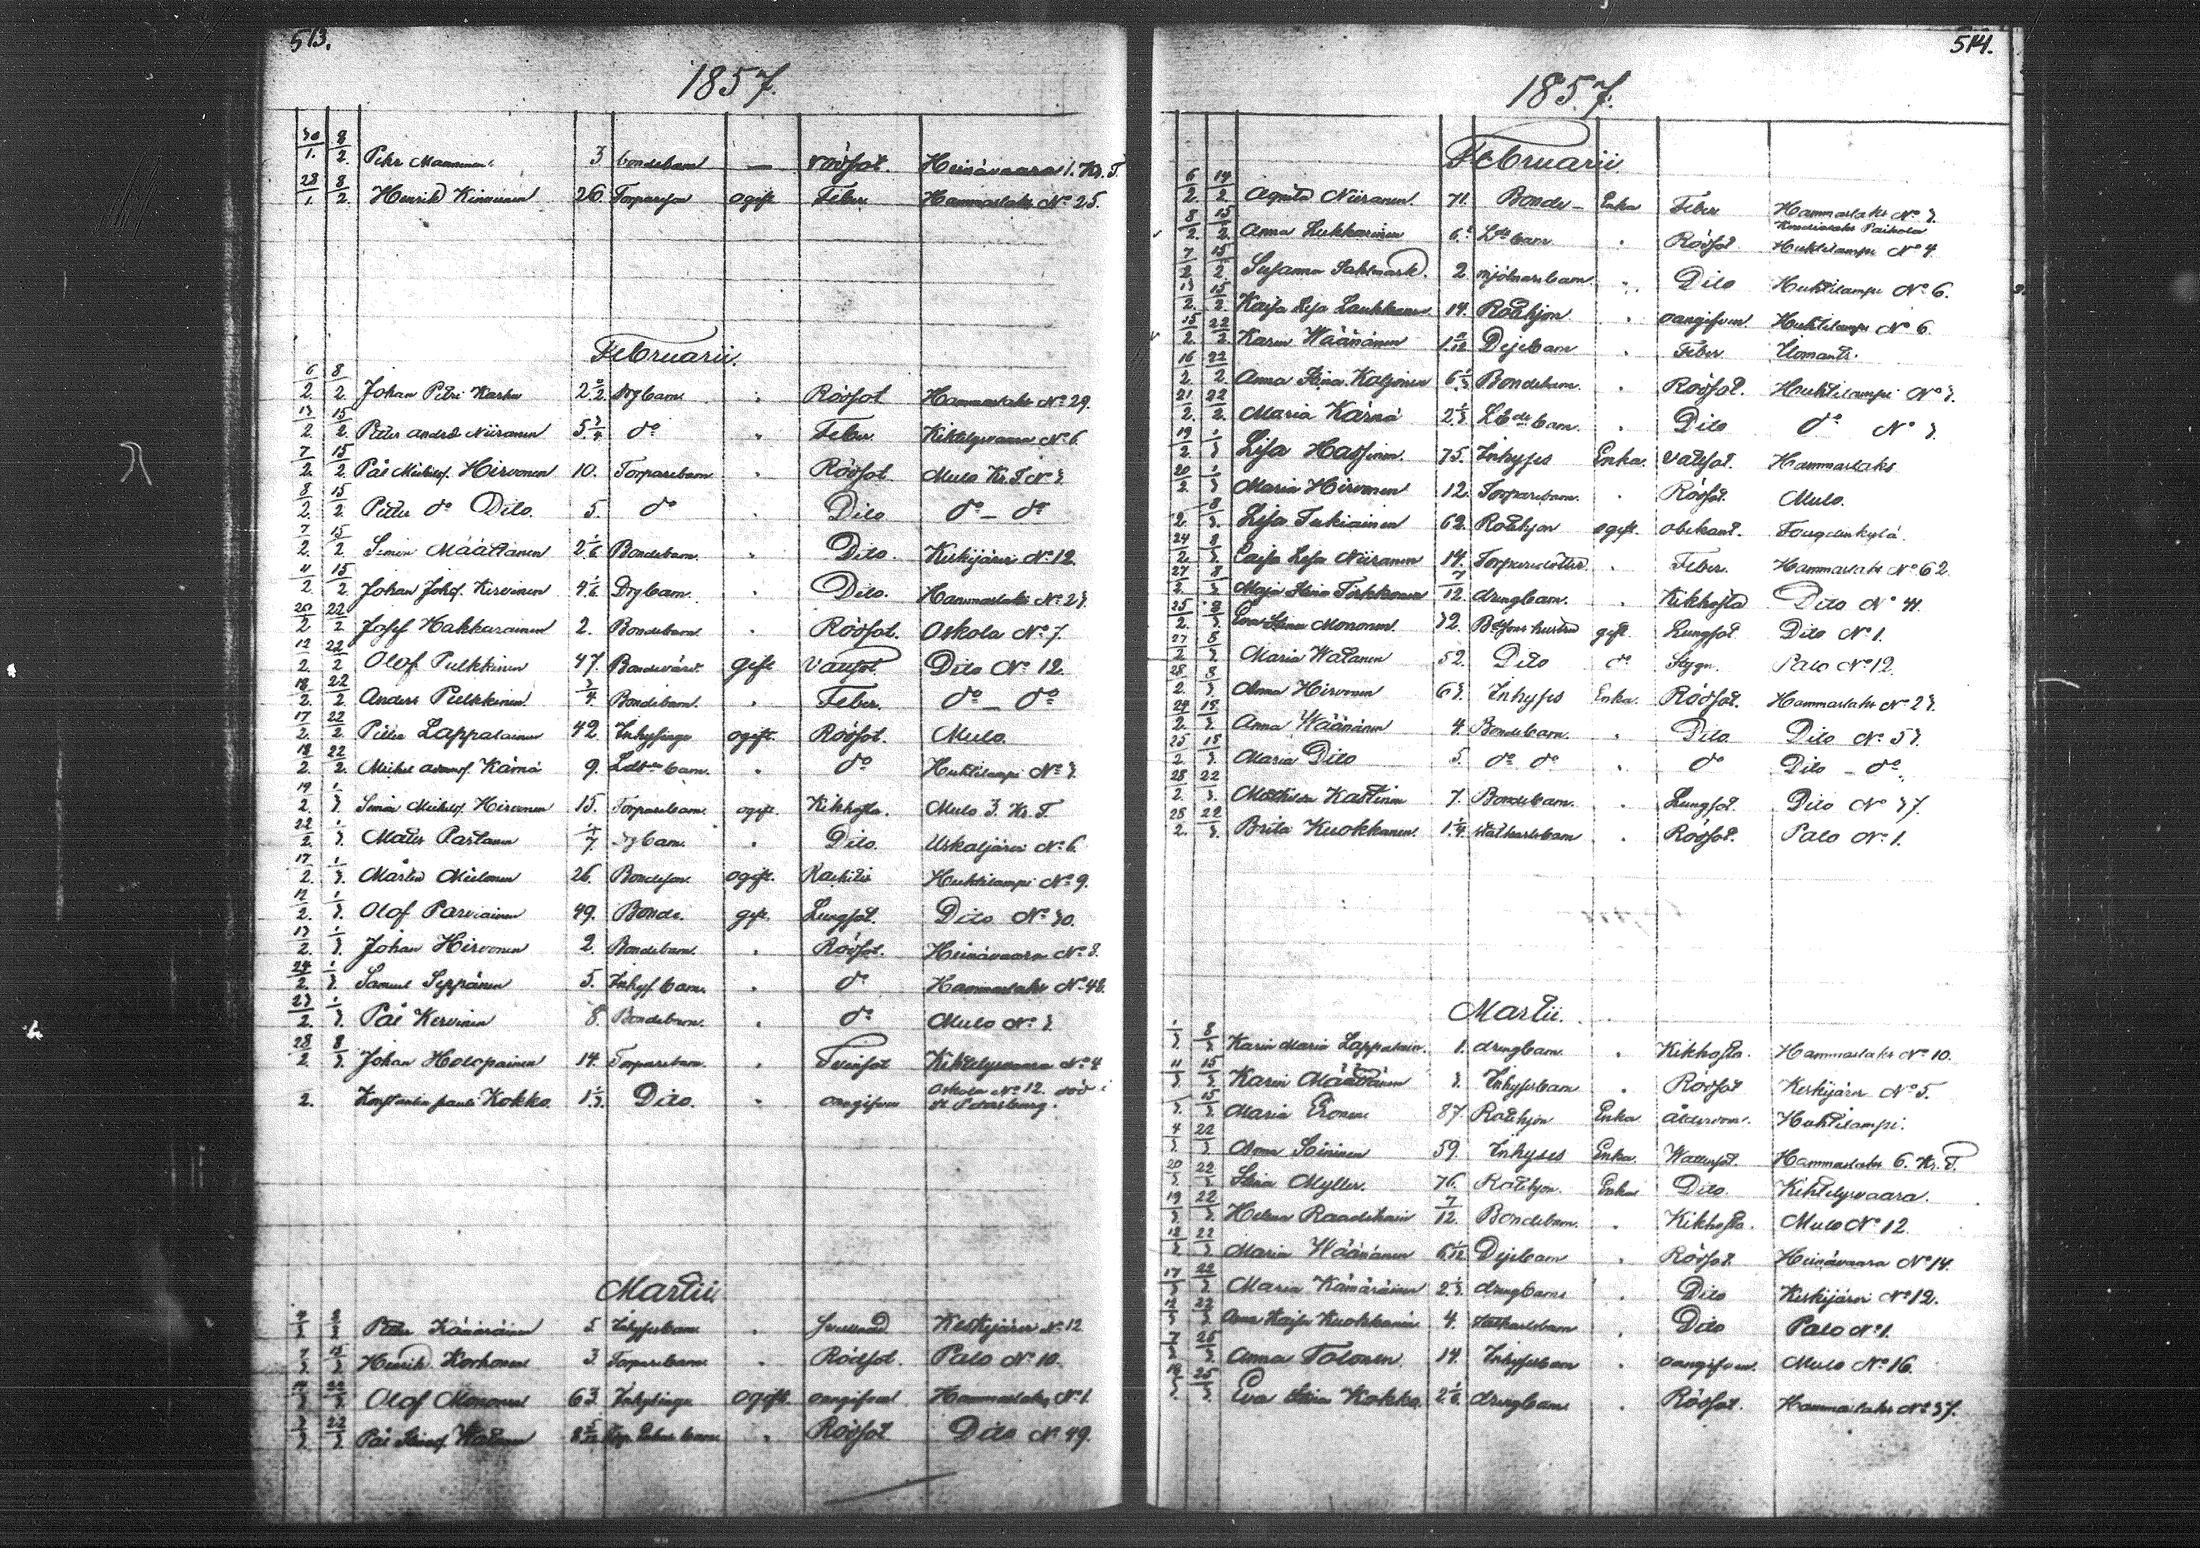 513.
1857.
30/1. 8/2. Petr Manninen 3 bondebarn — rödsot. Heinävaara 1. Kr. T.
28/1. 8/2. Henrik Kinnunen 26. Torpareson ogift Feber Hammaslaks No 25.
Februarii.
6/2. 8/2. Johan Petri Karhu Drgbarn Rödsot Hammaslaks No 29.
13/2. 15/2. Petter Andrs Niiranen 5 3/4 do Feber Kihtelysvaara No 6
7/2. 15/2. Pål Michelsf. Hirvonen 10. Torparebarn Rödsot Mulo Kr. T. No 3
8/2. 15/2. Petter do Dito. 5. do Dito do – do
7/2. 15/2. Simon Määttänen 2 1/6 Bondebarn. Dito. Keskijärvi No 12
11/2. 15/2. Johan Johsf. Kervinen 4 1/6 Drgbarn. Dito. Hammaslaks No 23.
20/2. 22/2. Josef Hakkarainen 2. Bondebarn Rödsot. Oskola No 7.
12/2. 22/2. Olof Pulkkinen 47. Bondevärd. gift Dito No 12.
18/2. 22/2. Anders Pulkkinen 3/4. Bondebarn. Feber. do – do
17/2. 22/2. Petter Lappalainen 42. Inhysinge ogift. Rödsot. Mulo.
18/2. 22/2. Michel Kärnä 9. barn. do Huhtilampi No 3.
19/2. 1/3. Simon Michelsf. Hirvonen 15. Torparebarn. ogift. Kikhosta. Mulo 3. Kr. T.
22/2. 1/3. Matts Partanen 1/7. Drgbarn. Dito. Uskaljärvi No 6.
17/2. 1/3. Mårten Mielonen 26. Bondeson. ogift. Rachitis Huhtilampi No 9.
12/2. 1/3. Olof Parviainen 49. Bonde. gift. Lungsot. Dito No 30.
13/2. 1/3. Johan Hirvonen 2 Bondebarn. Rödsot. Heinävaara No 8.
24/2. 1/3. Samuel Seppänen 5. Inhysbarn. do Hammaslaks No 48.
23/2. 1/3. Pål Kervinen 8. Bondebarn. do Mulo No 3
28/2. 8/3. Johan Holopainen 14. Torparebarn. Tvinsot Kihtelysvaara No 4
2. Konstantin Kokko. 1 1/3. Dito. oangifven Oskola No 12. död i
St. Petersburg.
Martii.
2/3 8/3 Petter Känäräinen 5. Inhysebarn. Keskijärvi No 12
7/3 15/3 Henrik Korhonen 3. Torparebarn. Rödsot. Palo No 10.
22/3 Olof Mononen 63. Inhysinge ogift. oangifven Hammaslaks No 1.
3/3 22/3 Pål Watanen barn Rödsot Dito No 49.
514.
1857.
Februarii
6/2. 14/2. Agneta Niiranen. 71. Bonde – Enka Feber Hammaslaks No 3.
Paihola
8/2. 15/2. Anna Hukkarinen barn Rödsot. Huhtilampi No 4.
7/2. 15/2. Susanna Sahlmark. 2. mjölnarebarn Dito Huhtilampi No 6.
13/2. 15/2. Kaisa Lisa Laukkanen 14. Rotehjon. oangifven Huhtilampi No 6.
15/2. 22/2. Karin Wäänänen Dejebarn Feber Ilomants.
16/2. 22/2. Anna Stina Kaljonen 6 1/3. Bondebarn. Rödsot. Huhtilampi No 3.
21/2. 22/2. Maria Kärnä 2 1/3. barn. Dito do No 3.
19/2. 1/3. Lisa Hassinen. 75. Inhyses Enka. vattsot. Hammaslaks
20/2. 1/3. Maria Hirvonen 12. Torparebarn. Rödsot. Mulo.
2. 8/3. Lisa Turkiainen 62. Rotehjon ogift. obekant. Fougdenkylä.
24/2. 8/3. Caisa Lisa Niiranen 14. Torparedotter. Feber. Hammaslaks No 62.
27/2. 8/3. Maja Stina Törkkönen 7/12. drengbarn. Kikhosta Dito No 41.
25/2. 8/3. Eva Stina Mononen. 32. hustru gift. Lungsot. Dito No 1.
27/2. 8/3. Maria Watanen 52. Dito do Stygn. Palo No 12.
28/2. 8/3. Anna Hirvonen 63. Inhyses Enka. Rödsot. Hammaslaks No 23.
24/2. 15/3. Anna Wäänänen 4 Bondebarn. Dito. Dito No 53.
25/2. 15/3. Maria Dito 5. do do do Dito – do.
28/2. 22/3. Mathilda Kastinen 7. Bondebarn. Lungsot. Dito No 37.
25/2. 22/3. Brita Kuokkanen. 1 1/4. statkarlsbarn Rödsot. Palo No 1.
Martii.
1/3 8/3 Karin Maria Lappalain. 1. drengbarn. Kikhosta. Hammaslaks No 10.
11/3 15/3 Karin Määttänen 3. Inhysebarn Rödsot Keskijärvi No 5.
3. 15/3 Maria Eronen 87. Rotehjon Enka ålderdom. Huhtilampi.
4/3 22/3 Anna Soininen 59. Inhyses Enka. Wattusot. Hammaslaks 6. Kr. T.
20/3 22/3 Stina Myller. 76. Rotehjon. Enka Dito. Kihtelysvaara.
19/3 22/3 Helena Raadikain 7/12. Bondebarn. Kikhosta. Mulo No 12.
18/3 22/3 Maria Wäänänen 6 1/12 Dejebarn Rödsot. Heinävaara No 14.
17/3 22/3 Maria Känäräinen 2 1/3. drengbarn Dito Keskijärvi No 12.
12/3 22/3 Anna Kaisa Kuokkanen 4. statkarlsbarn Dito Palo No 1.
7/3 25/3 Anna Tolonen. 14. Inhysebarn oangifven. Mulo No 16.
18/3 25/3 Eva Stina Kokko. 2 1/6. drengbarn Rödsot. Hammaslaks No 37.